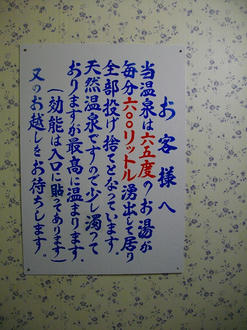 お客様へ
当温泉は六五度のお湯が
毎分六〇〇リットル湧出して居り
全部投げ捨てとなっています。
天然温泉ですので少し濁って
おりますが最高に温まります
(効能は入口に貼ってあります)
又のお越しをお待ちします